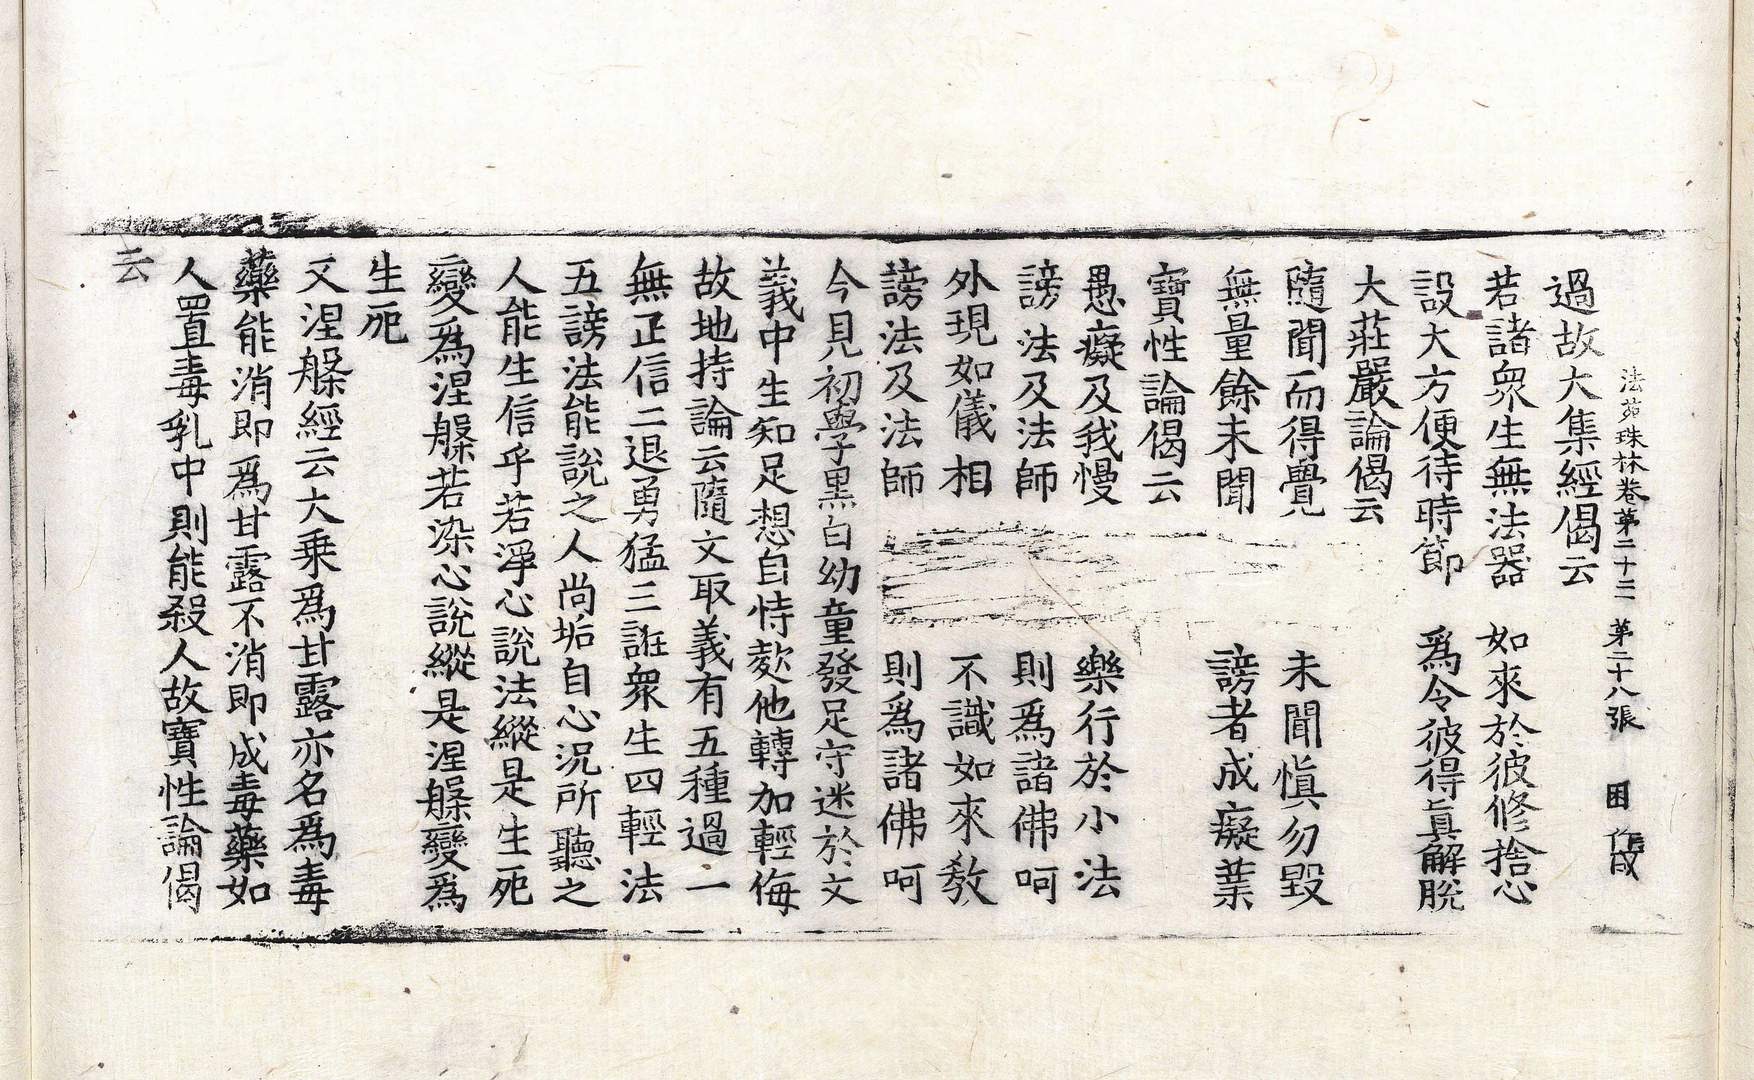 法苑珠林卷第二十三 第二十八張 困 作成
過故大集經偈云
若諸衆生無法器 如來於彼修捨心
設大方便待時節 爲令彼得眞解脫
大莊嚴論偈云
隨聞而得覺 未聞愼勿毀
無量餘未聞 謗者成癡業
寶性論偈云
愚癡及我慢 樂行於小法
謗法及法師 則爲諸佛呵
外現如儀相 不識如來教
謗法及法師 則爲諸佛呵
今見初學黒白幼童發足守迷於文
義中生知足想自恃欺他轉加輕侮
故地持論云隨文取義有五種過一
無正信二退勇猛三誑衆生四輕法
五謗法能說之人尚垢自心況所聽之
人能生信乎若淨心說法縱是生死
變爲涅槃若染心說縱是涅槃變爲
生死
又涅槃經云大乗爲甘露亦名爲毒
藥能消即爲甘露不消即成毒藥如
人置毒乳中則能殺人故寶性論偈
云